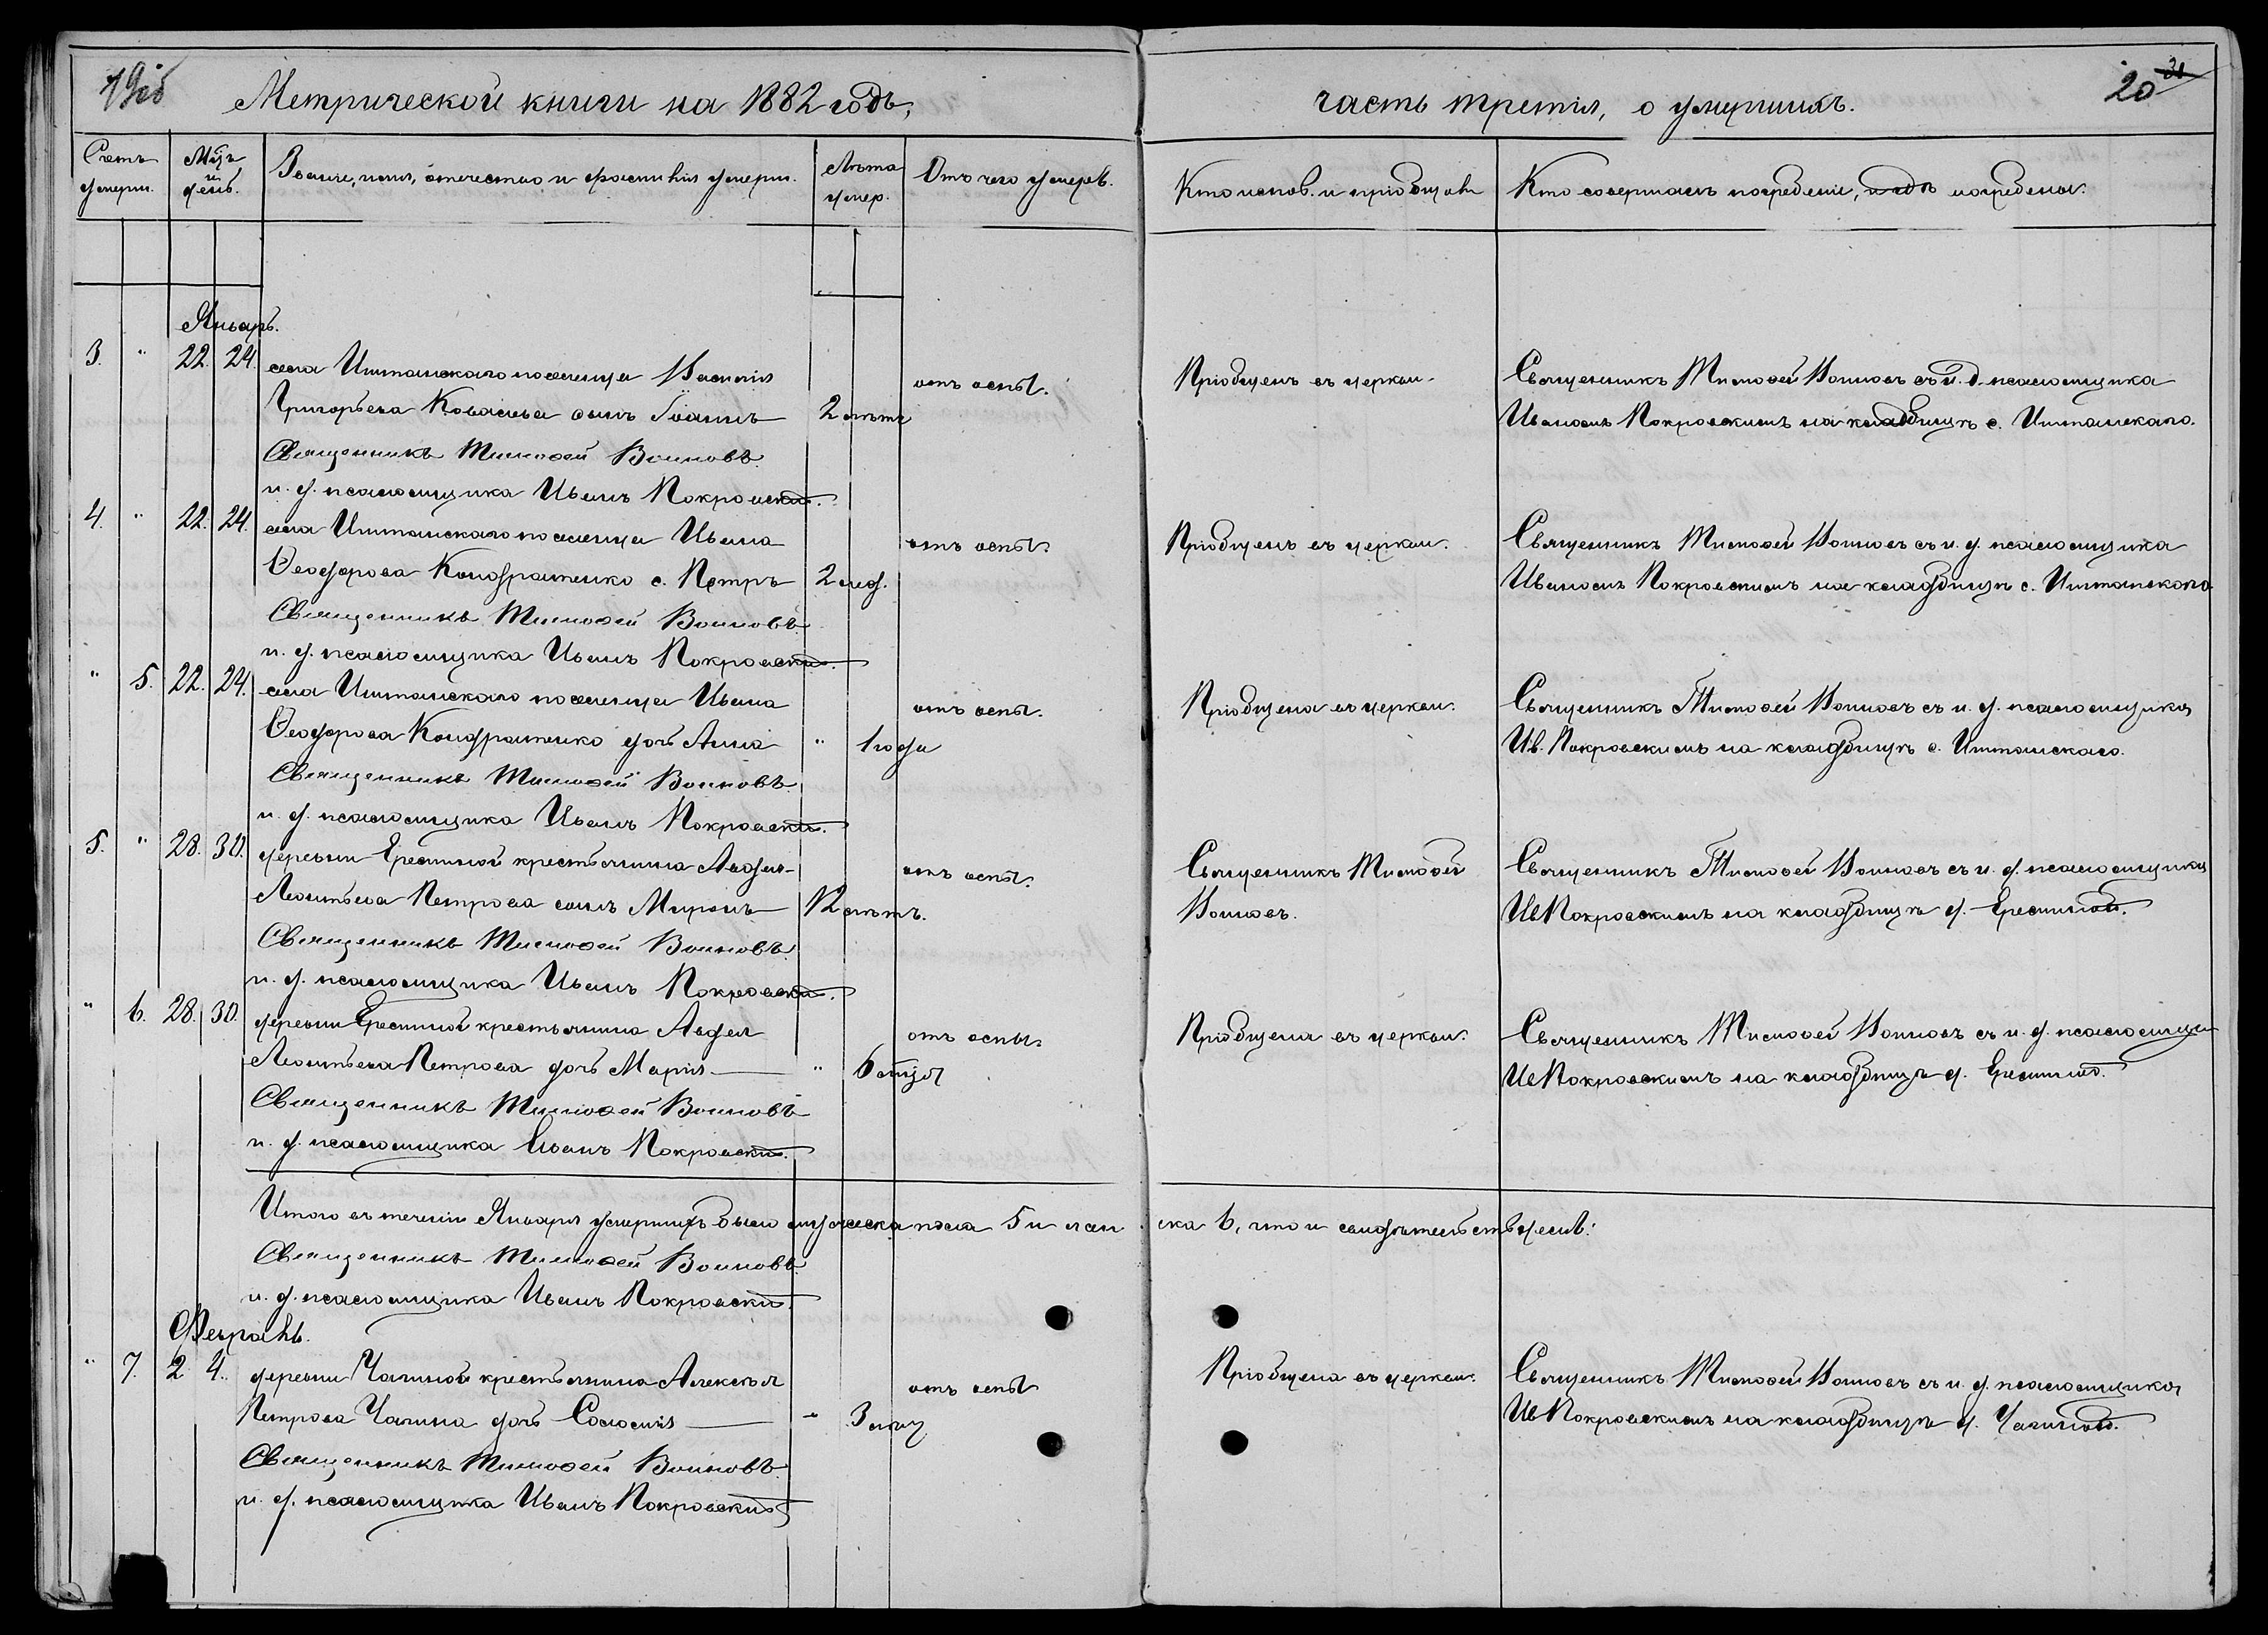 19об
Метрической книги на 1882 годъ,
часть третія, о умершихъ.
20 31
Счетъ умерш.
Мѣць и день.
Званіе, имя, отечество и фамилія умерш.
Лѣта умер.
Отъ чего умеръ.
Кто испов. и пріобщалъ
Кто совершалъ погребеніе, и гдѣ погребены.
Январь.
3. " 22. 24. села Иштанскаго поселенца Василія
отъ оспы.
Пріобщенъ въ церкви.
Священникъ Тимофей Воиновъ съ и. д. псаломщика
Григорьева Ковалева сынъ Іоаннъ 2 лѣтъ
Иваномъ Покровскимъ на кладбищѣ с. Иштанскаго.
Священникъ Тимофей Воиновъ.
и. д. псаломщика Иванъ Покровскій.
4. " 22. 24. села Иштанскаго поселенца Ивана
отъ оспы.
Пріобщенъ въ церкви.
Священникъ Тимофей Воиновъ съ и. д. псаломщика
Ѳеодорова Кондратенко с. Петръ 2 нед.
Иваномъ Покровскимъ на кладбищѣ с. Иштанскаго
Священникъ Тимофей Воиновъ.
и. д. псаломщика Иванъ Покровскій.
" 5. 22. 24. села Иштанскаго поселенца Ивана
отъ оспы.
Пріобщена въ церкви.
Священникъ Тимофей Воиновъ съ и. д. псаломщика
Ѳеодорова Кондратенко дочь Анна " 1 года
Ив. Покровскимъ на кладбищѣ с. Иштанскаго.
Священникъ Тимофей Воиновъ.
и. д. псаломщика Иванъ Покровскій.
5. " 28. 30. деревни Ерениной крестьянина Авдея
отъ оспы.
Священникъ Тимофей
Священникъ Тимофей Воиновъ съ и. д. псаломщика
Леонтьева Петрова сынъ Миронъ 12 лѣтъ.
Воиновъ.
Ив Покровскимъ на кладбищѣ д. Ерениной.
Священникъ Тимофей Воиновъ.
и. д. псаломщика Иванъ Покровскій.
" 6. 28. 30. деревни Ерениной крестьянина Авдея
отъ оспы.
Пріобщена въ церкви.
Священникъ Тимофей Воиновъ съ и. д. псаломщи
Леонтьева Петрова дочь Марія " 6 мцы
Ив Покровскимъ на кладбищѣ д. Ерениной.
Священникъ Тимофей Воиновъ
и. д. псаломщика Иванъ Покровскій.
Итого въ теченіи Января умершихъ было мужескаго пола 5 и женска 6, что и свидѣтельствуемъ:
Священникъ Тимофей Воиновъ.
и. д. псаломщика Иванъ Покровскій.
Февраль.
" 7. 2 4. деревни Чагиной крестьянина Алексѣя
отъ оспы
Пріобщена въ церкви.
Священникъ Тимофей Воиновъ съ и. д. псаломщика
Петрова Чагина дочь Соломія " 3 мцу
Ив Покровскимъ на кладбищѣ д. Чагиной.
Священникъ Тимофей Воиновъ.
и. д. псаломщика Иванъ Покровскій